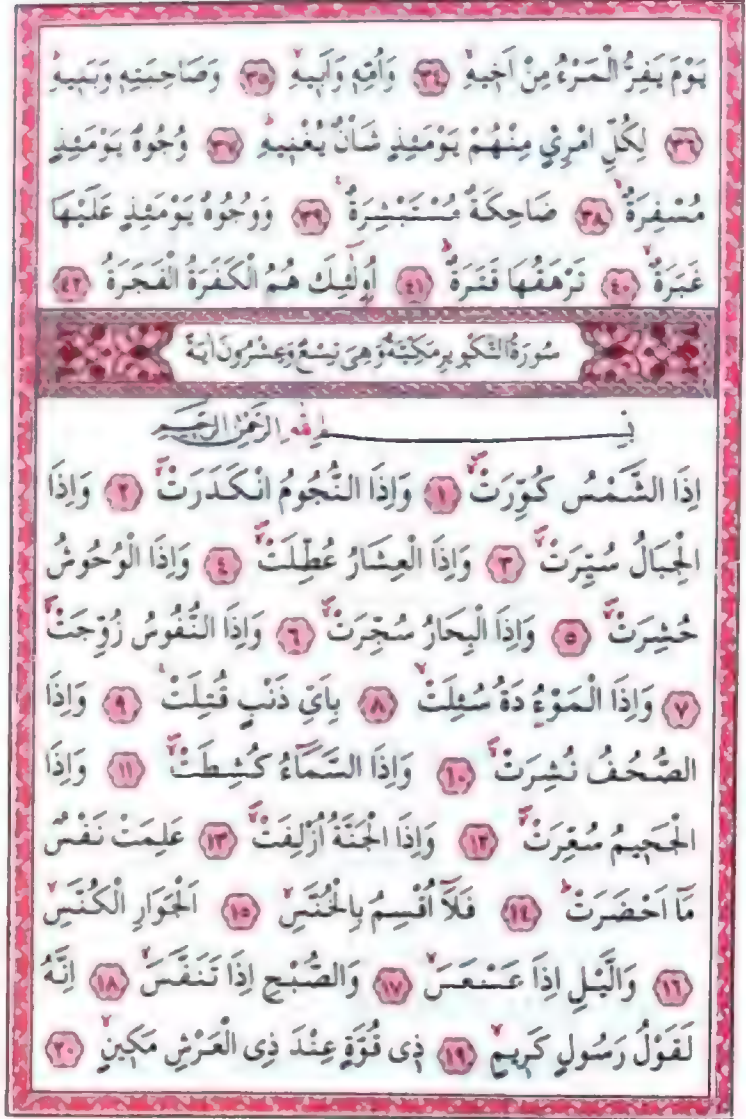 يَوْمَ يَفِرُّ الْمَرْءُ مِنْ اَخ۪يهِۙ ٣٤ وَاُمِّه۪ وَاَب۪يهِۙ ٣٥ وَصَاحِبَتِه۪ وَبَن۪يهِۜ
٣٦ لِكُلِّ امْرِئٍ مِنْهُمْ يَوْمَئِذٍ شَأْنٌ يُغْن۪يهِۜ ٣٧ وُجُوهٌ يَوْمَئِذٍ
مُسْفِرَةٌۙ ٣٨ ضَاحِكَةٌ مُسْتَبْشِرَةٌۚ ٣٩ وَوُجُوهٌ يَوْمَئِذٍ عَلَيْهَا
غَبَرَةٌۙ ٤٠ تَرْهَقُهَا قَتَرَةٌۜ ٤١ اُو۬لٰٓئِكَ هُمُ الْكَفَرَةُ الْفَجَرَةُ ٤٢
سُورَةُ التَّكْوِيرِ مَكِّيَّةٌ وَهِيَ تِسْعٌ وَعِشْرُونَ اٰيَةً
بِسْمِ اللّٰهِ الرَّحْمٰنِ الرَّحِيمِ
اِذَا الشَّمْسُ كُوِّرَتْۙ ١ وَاِذَا النُّجُومُ انْكَدَرَتْۙ ٢ وَاِذَا
الْجِبَالُ سُيِّرَتْۙ ٣ وَاِذَا الْعِشَارُ عُطِّلَتْۙ ٤ وَاِذَا الْوُحُوشُ
حُشِرَتْۙ ٥ وَاِذَا الْبِحَارُ سُجِّرَتْۙ ٦ وَاِذَا النُّفُوسُ زُوِّجَتْۙ
٧ وَاِذَا الْمَوْءُ۫دَةُ سُئِلَتْۙ ٨ بِاَيِّ ذَنْبٍ قُتِلَتْۚ ٩ وَاِذَا
الصُّحُفُ نُشِرَتْۙ ١٠ وَاِذَا السَّمَٓاءُ كُشِطَتْۙ ١١ وَاِذَا
الْجَح۪يمُ سُعِّرَتْۙ ١٢ وَاِذَا الْجَنَّةُ اُزْلِفَتْۙ ١٣ عَلِمَتْ نَفْسٌ
مَٓا اَحْضَرَتْۜ ١٤ فَلَٓا اُقْسِمُ بِالْخُنَّسِۙ ١٥ اَلْجَوَارِ الْكُنَّسِۙ
١٦ وَالَّيْلِ اِذَا عَسْعَسَۙ ١٧ وَالصُّبْحِ اِذَا تَنَفَّسَۙ ١٨ اِنَّهُ
لَقَوْلُ رَسُولٍ كَر۪يمٍۙ ١٩ ذ۪ي قُوَّةٍ عِنْدَ ذِي الْعَرْشِ مَك۪ينٍۙ ٢٠